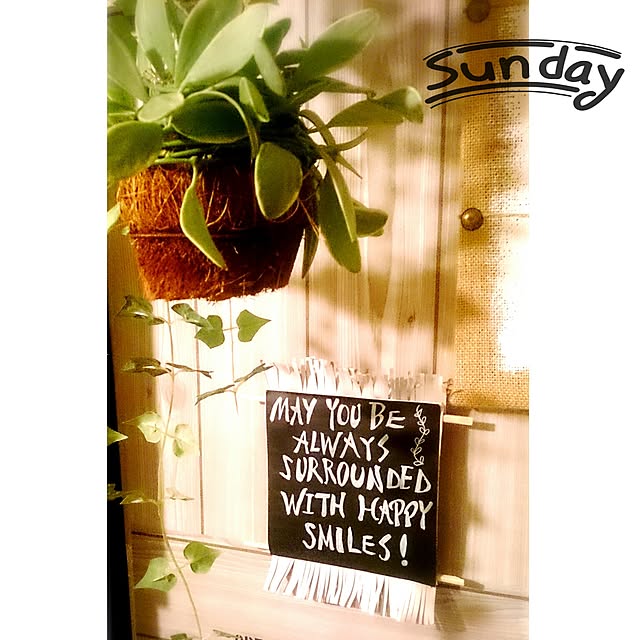 Sunday
MAY YOU BE
ALWAYS
SURROUNDED
WITH HAPPY
SMILES!